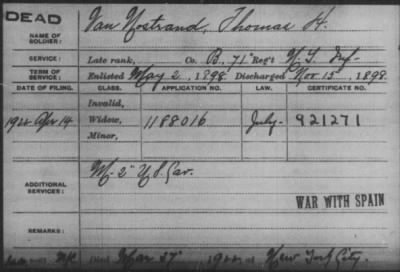 DEAD
Van Nostrand, Thomas H.
NAME OF
SOLDIER:
SERVICE: Late rank, Co. B, 71" Reg't N.Y. Inf.
TERM OF
SERVICE: Enlisted May 2, 1898 Discharged Nov. 15", 1898
DATE OF FILING. CLASS. APPLICATION NO. LAW. CERTIFICATE NO.
Invalid,
Apr. 14 Widow, 1188016 July- 921271
Minor,
ADDITIONAL
SERVICES: M- 2" U.S. Cav.
WAR WITH SPAIN
REMARKS:
Mar. 27" at New York City.